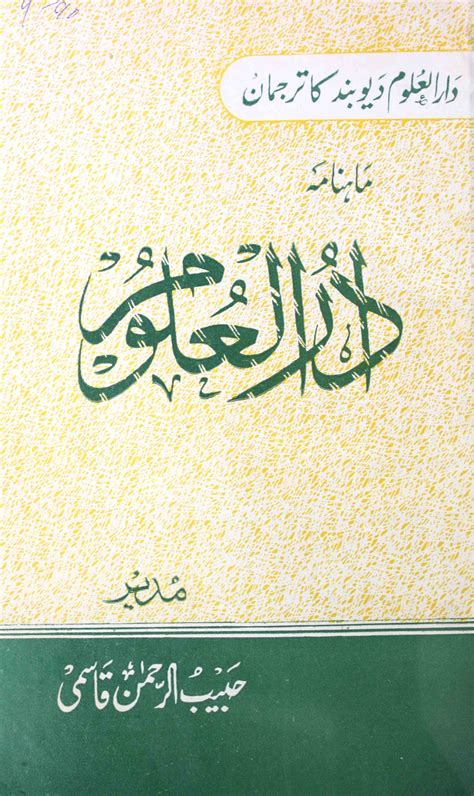 دارالعلوم دیوبند کا ترجمان
ماہنامہ
دارُالعُلُوم
مُدیر
حبیبُ الرحمٰن قاسمی